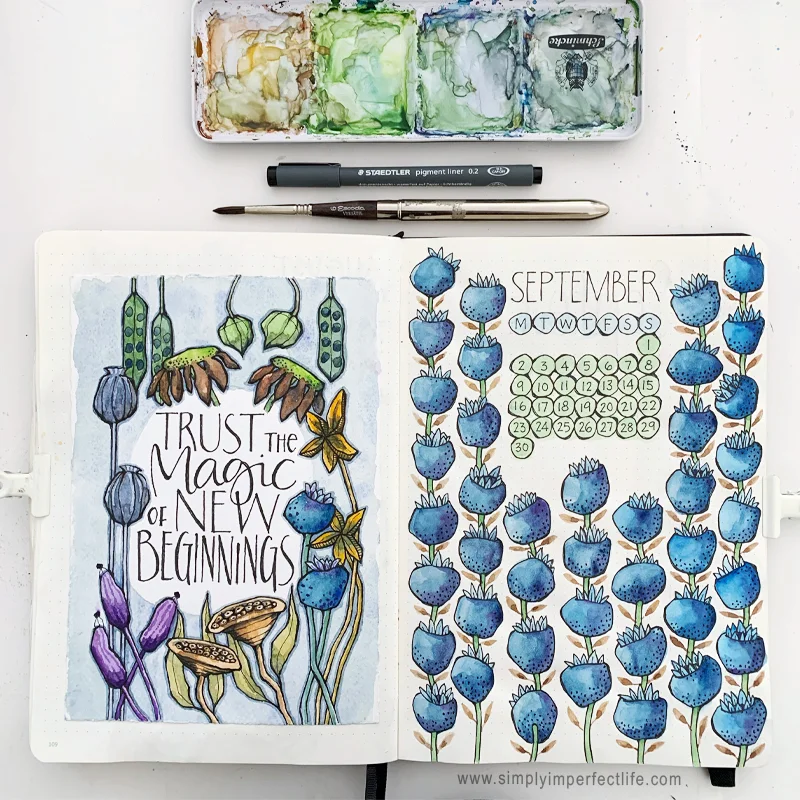 Schmincke
STAEDTLER pigment liner 0.2
6 Escoda
TRUST THE
Magic
OF NEW
BEGINNINGS
SEPTEMBER
M T W T F S S
1
2 3 4 5 6 7 8
9 10 11 12 13 14 15
16 17 18 19 20 21 22
23 24 25 26 27 28 29
30
www.simplyimperfectlife.com